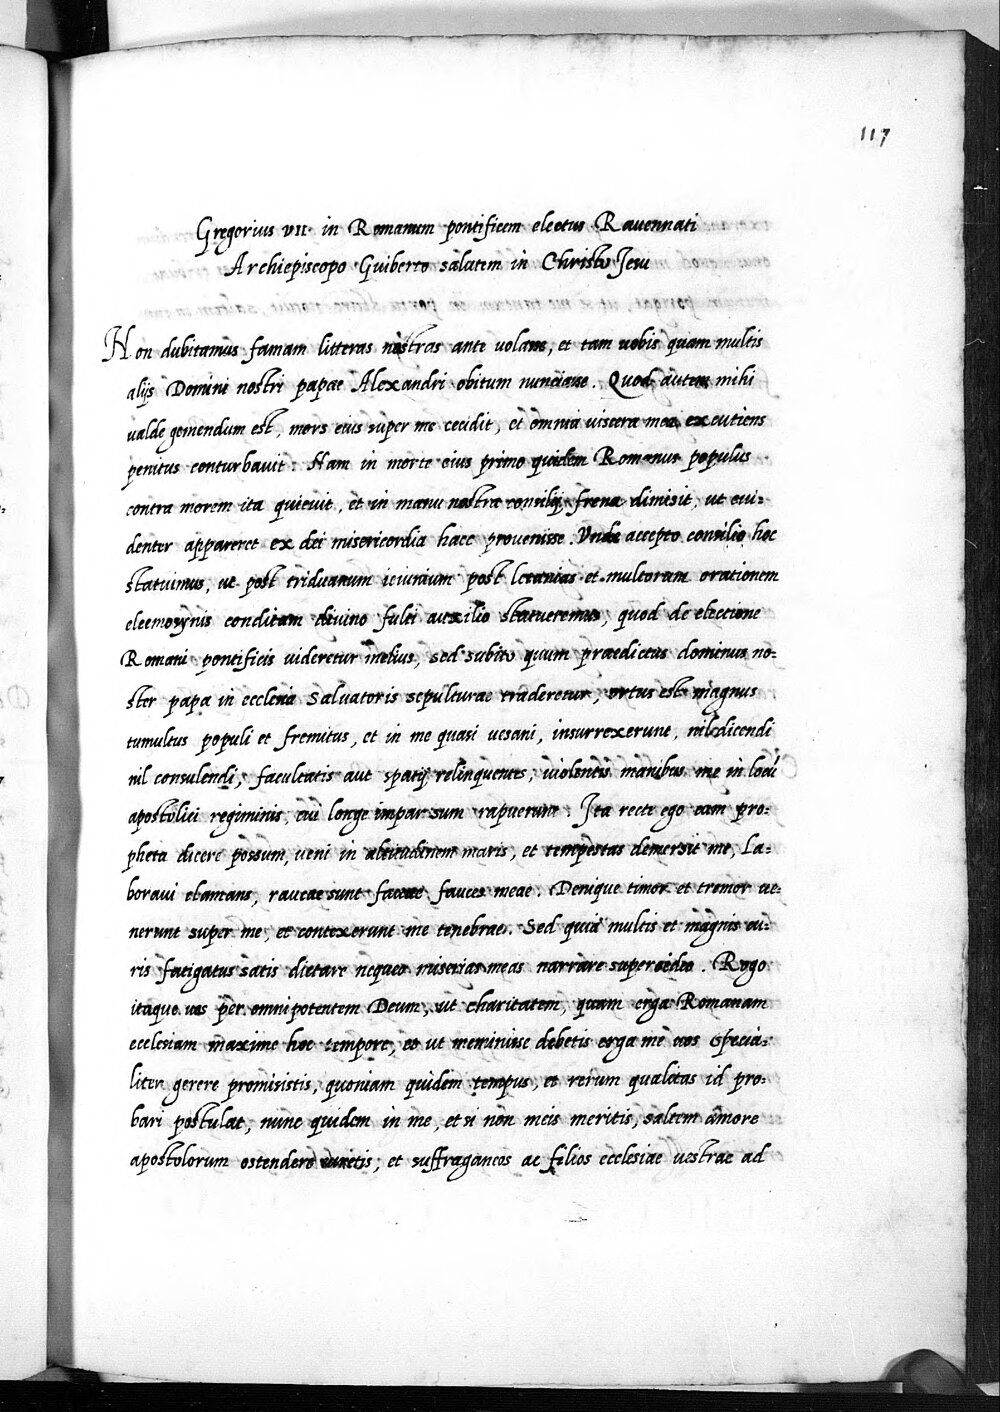 117
Gregorius VII. in Romanum pontificem electus Ravennati
Archiepiscopo Guiberto salutem in Christo Jesu
Non dubitamus famam litteras nostras ante volare, et tam uobis quam multis
alijs Domini nostri papae Alexandri obitum nunciasse. Quod autem mihi
ualde gemendum est, mors eius super me cecidit, et omnia viscera mea excutiens
penitus conturbauit: Nam in morte eius primo quidem Romanus populus
contra morem ita quieuit, et in manu nostra consilij frena dimisit, ut eui=
denter appareret ex dei misericordia haec prouenisse. Unde accepto consilio hoc
statuimus, ut post triduanum ieiunium post letanias et multorum orationem
eleemosynis conditam diuino fulti auxilio statueremus, quod de electione
Romani pontificis uideretur melius, sed subito quum praedictus dominus no=
ster papa in ecclesia Saluatoris sepulturae traderetur, ortus est magnus
tumultus populi et fremitus, et in me quasi uesani, insurrexerunt, nil dicendi
nil consulendi, facultatis aut spatij relinquentes, uiolentis manibus me in locū
apostolici regiminis, cui longe impar sum rapuerunt: Ita recte ego cum pro=
pheta dicere possum, ueni in altitudinem maris, et tempestas demersit me, La=
boraui clamans, raucae sunt factae fauces meae. Denique timor et tremor ue=
nerunt super me, et contexerunt me tenebrae. Sed quia multis et magnis cu=
ris fatigatus satis dictare nequeo miserias meas narrare supersedeo. Rogo
itaque uos per omnipotentem Deum, ut charitatem, quam erga Romanam
ecclesiam maxime hoc tempore, et ut meminisse debetis erga me uos specia=
liter gerere promisistis, quoniam quidem tempus, et rerum qualitas id pro=
bari postulat, nunc quidem in me, et si non meis meritis, saltem amore
apostolorum ostendere curetis; et suffraganeos ac filios ecclesiae uestrae ad